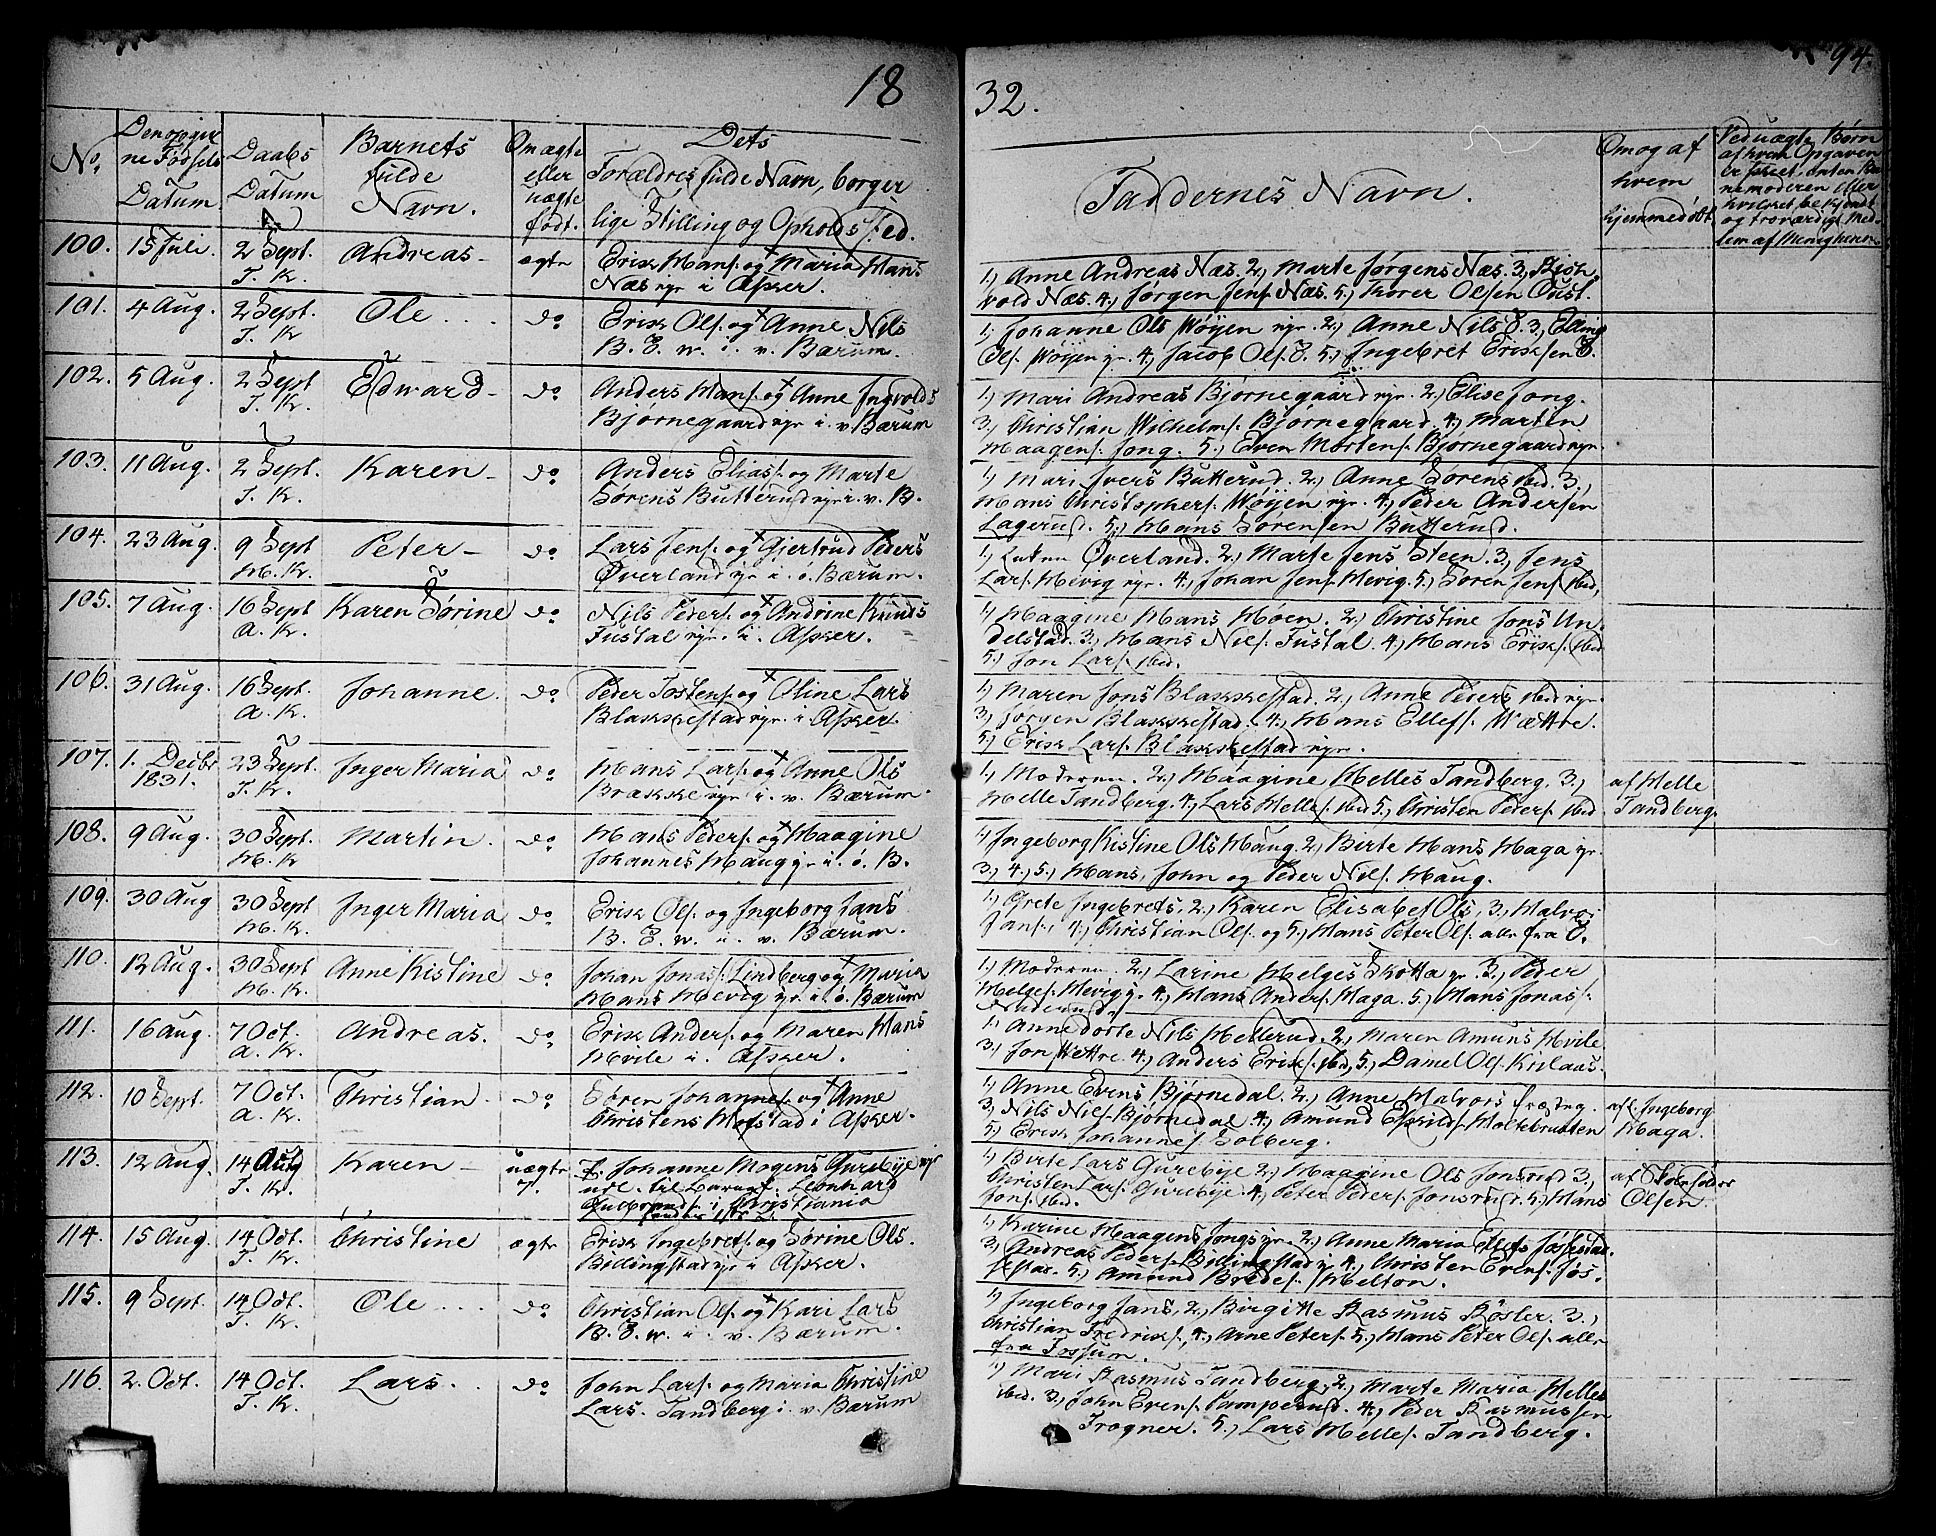 18
32.
94.
No.
Den opgivne Fødsels Datum
Daabs Datum
Barnets fulde Navn.
Om ægte eller uægte født.
Dets Forældres fulde Navn, borgerlige Stilling og Opholds Sted.
Faddernes Navn.
Om og af hvem hjemmedøbt.
Ved uægte Børn af hvem Opgaven er skeet, enten Barnemoderen eller hvilket bekjendt og troværdigt Medlem af Menigheden
100. 15 Juli 2 Sept. T. K. Andreas - ægte
Erik Hans. og Maria Hans
Næs eyr i Asker.
1, Anne Andreas Næs. 2, Marte Jørgens Næs. 3,
vold Næs. 4, Jørgen Jens. Næs. 5, Torer Olsen
101. 4 Aug. 2 Sept. T. K. Ole . . . do
Erik Ols. og Anne Nils
B. E. w. i. v. Bærum.
1, Johanne Ols Wøyen eyr. 2, Anne Nils E. 3, Elling
Ols. Wøyen yr. 4, Jacob Ols. E. 5, Ingebret Eriksen E.
102. 5 Aug. 2 Sept T. K. Edward - do
Anders Hans. og Anne Ingvolds
Bjørnegaard eyr i. v. Bærum
1, Mari Andreas Bjørnegaard eyr. 2, Elise Jong.
3, Christian Wilhelms. Bjørnegaard. 4, Martin
Haagens. Jong. 5, Even Mortens. Bjørnegaard eyr.
103. 11 Aug. 2 Sept. T. K. Karen - do
Anders Elias. og Marte
Sørens Butterud eyr i. v. B.
1, Mari Ivers Butterud. 2, Anne Sørens ibid. 3,
Hans Christophers. Wøyen eyr. 4, Peder Andersen
Lagerud. 5, Hans Sørensen Butterud.
104. 23 Aug. 9 Sept H. K. Peter - do
Lars Jens. og Gjertrud Peders
Øverland eyr i. ö. Bærum.
1, Øverland. 2, Marte Jens Steen. 3, Jens
Lars. Hevig eyr. 4, Johan Jens. Hevig. 5, Søren Jens. ibid,
105. 7 Aug. 16 Sept A. K. Karen Sørine do
Nils Peders. og Andrine Knuds
Fustal eyr. i. Asker.
1, Haagine Hans Høen. 2, Christine Jons Un-
delstad. 3, Hans Nils. Fustal. 4, Hans Eriks. ibid
5, Jon Lars. ibid.
106. 31 Aug. 16 Sept. A. K. Johanne. do
Peder Tostens. og Oline Lars
Blakkestad eyr i Asker.
1, Maren Jons Blakkestad. 2, Anne Peders ibid eyr.
3, Jørgen Blakkestad. 4, Hans Ellefs. Wættre.
5, Erik Lars. Blakkestad eyr.
107. 1. Decbr 1831. 23 Sept. T. K. Inger Maria do
Hans Lars. og Anne Ols
Brække eyr i. v. Bærum.
1, Moderen. 2, Haagine Helles Tandberg. 3,
Helle Tandberg. 4, Lars Helles. ibid 5, Christen Peders. ibid.
af Helle
Tandberg.
108. 9 Aug. 30 Sept. H. K Martin. do
Hans Peders. og Haagine
Johannes Haug yr i. ö. B.
1, Ingeborg Kistine Ols Haug. 2, Birte Hans Haga yr.
3, 4, 5, Hans, John og Peder Nils. Haug.
109. 30 Aug 30 Sept H. K. Inger Maria do
Erik Ols. og Ingeborg Jans
B. E. w. i. v. Bærum.
1, Grete Ingebrets, 2, Karen Elisabet Ols, 3, Halvor
Jans., 4, Christian Ols. og 5, Hans Peter Ols. alle fra E.
110. 12 Aug. 30 Sept H. K. Anne Kistine do
Johan Jonas. Lindberg og Maria
Hans Hevig yr. i. ö. Bærum
1, Moderen. 2, Larine Helges Skotta yr. 3, Peder
Helges. Hevig y. 4, Hans Anders. Haga. 5, Hans Jonas.
111. 16 Aug. 7 Oct. A. K. Andreas. do
Erik Anders. og Maren Hans
Hvile i. Asker.
1, Anne Dorte Nils Hellerud. 2, Maren Amuns Hvile
3, Jon Wettre. 4, Anders Eriks. ibid, 5, Daniel Ols. Kislaas.
112. 10 Sept. 7 Oct. A. K. Christian. do
Søren Johannes. og Anne
Christens Hofstad i Asker.
1, Anne Evens Bjørnedal. 2, Anne Halvors
3, Nils Nils. Bjørnedal 4, Amund Eskilds. Holtebrotten
5, Erik Johannes. Solberg.
af Ingeborg
Haga.
113. 12 Aug. 14 T. K. Karen - uægte
Johanne Mogens Gurebye
udl. til Leonhard
Gulbrands. i Christiania
1, Birte Lars Gurebye 2, Haagine Ols Jonsrud 3,
Christen Lars. Gurebye. 4, Peter Peders. Jonsrud. 5, Hans
Jons. ibid.
Olsen.
114. 15 Aug. 14 Oct. T. K. Christine ægte
Erik Ingebrets. og Sørine Ols.
Billingstad eyr i Asker.
1, Karine Haagens Jongs yr. 2, Anne Maria Ellefs
3, Andreas Peders. Billingstad y 4, Christen Evens. Jos-
5, Amund Bredes. Helton.
115. 9 Sept. 14 Oct. T. K. Ole . . . do
Christian Ols. og Kari Lars
B. E. w. i. v. Bærum.
1, Ingeborg Jans, 2, Birgitte Rasmus Røsler. 3,
Christian Fredriks., 4, Arne Peters. 5, Hans Peter Ols. alle
fra Fossum.
116. 2. Oct. 14 Oct. T. K. Lars. do
John Lars. og Maria Christine
Lars. Tandberg i. v. Bærum
1, Mari Rasmus Tandberg, 2, Marte Maria Helles
ibid. 3, John Evens. Pamperud. 4, Peder Rasmussen
Frogner. 5, Lars Helles. Tandberg.